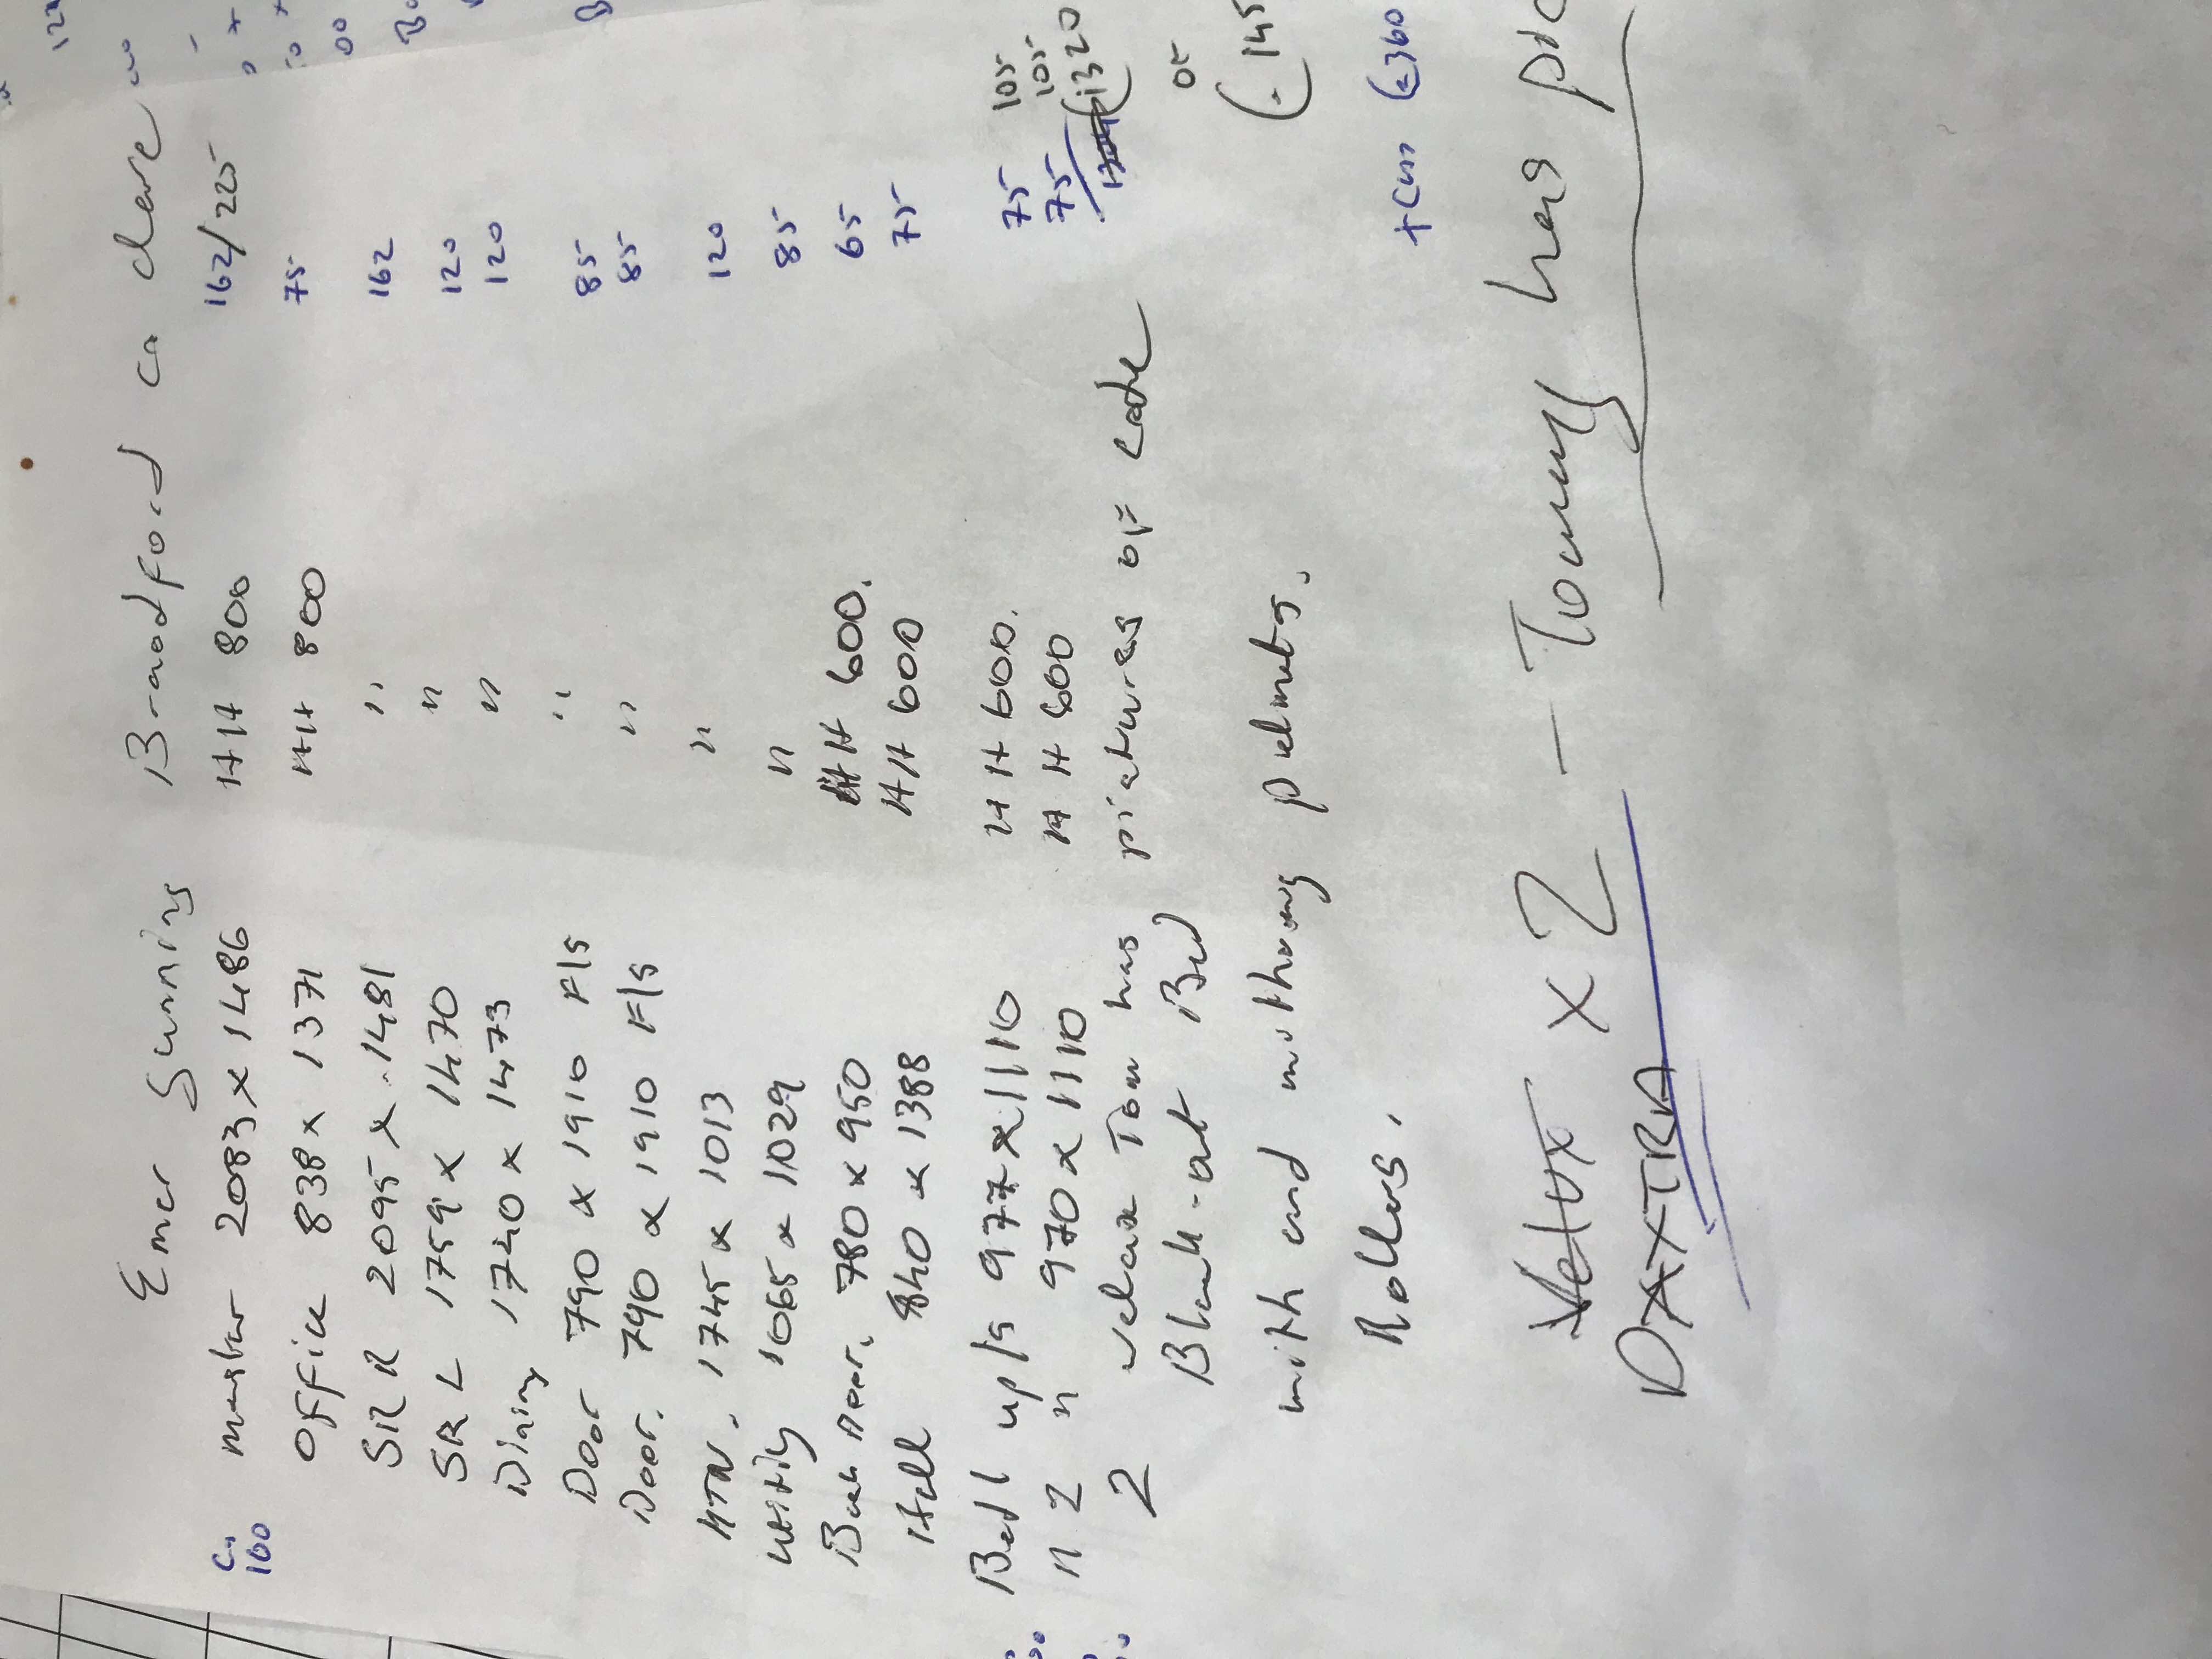 Emer Sunning Broadford co clare
master 2083 x 1486 HH 800 162/225
office 838 x 1371 HH 800 75
SRR 2095 x 1481 " 162
SRL 1759 x 1470 " 120
Dining 1740 x 1473 " 120
Door 790 x 1910 F/S " 85
Door. 790 x 1910 F/S " 85
KTN. 1745 x 1013 " 120
utility 1065 x 1029 " 85
Back Door. 780 x 950 HH 600. 65
Hall 840 x 1388 HH 600 75
Bed 1 up/s 977 x 1110 HH 600. 75 105
" 2 " 970 x 1110 HH 600 75 105
2 velux Tom has pictures of code
1320
Black-out Bed
or
145
with and without pelmets.
Rollers.
+Cus 360
Velux x 2 - Tommy has pic
DAXTRA
100